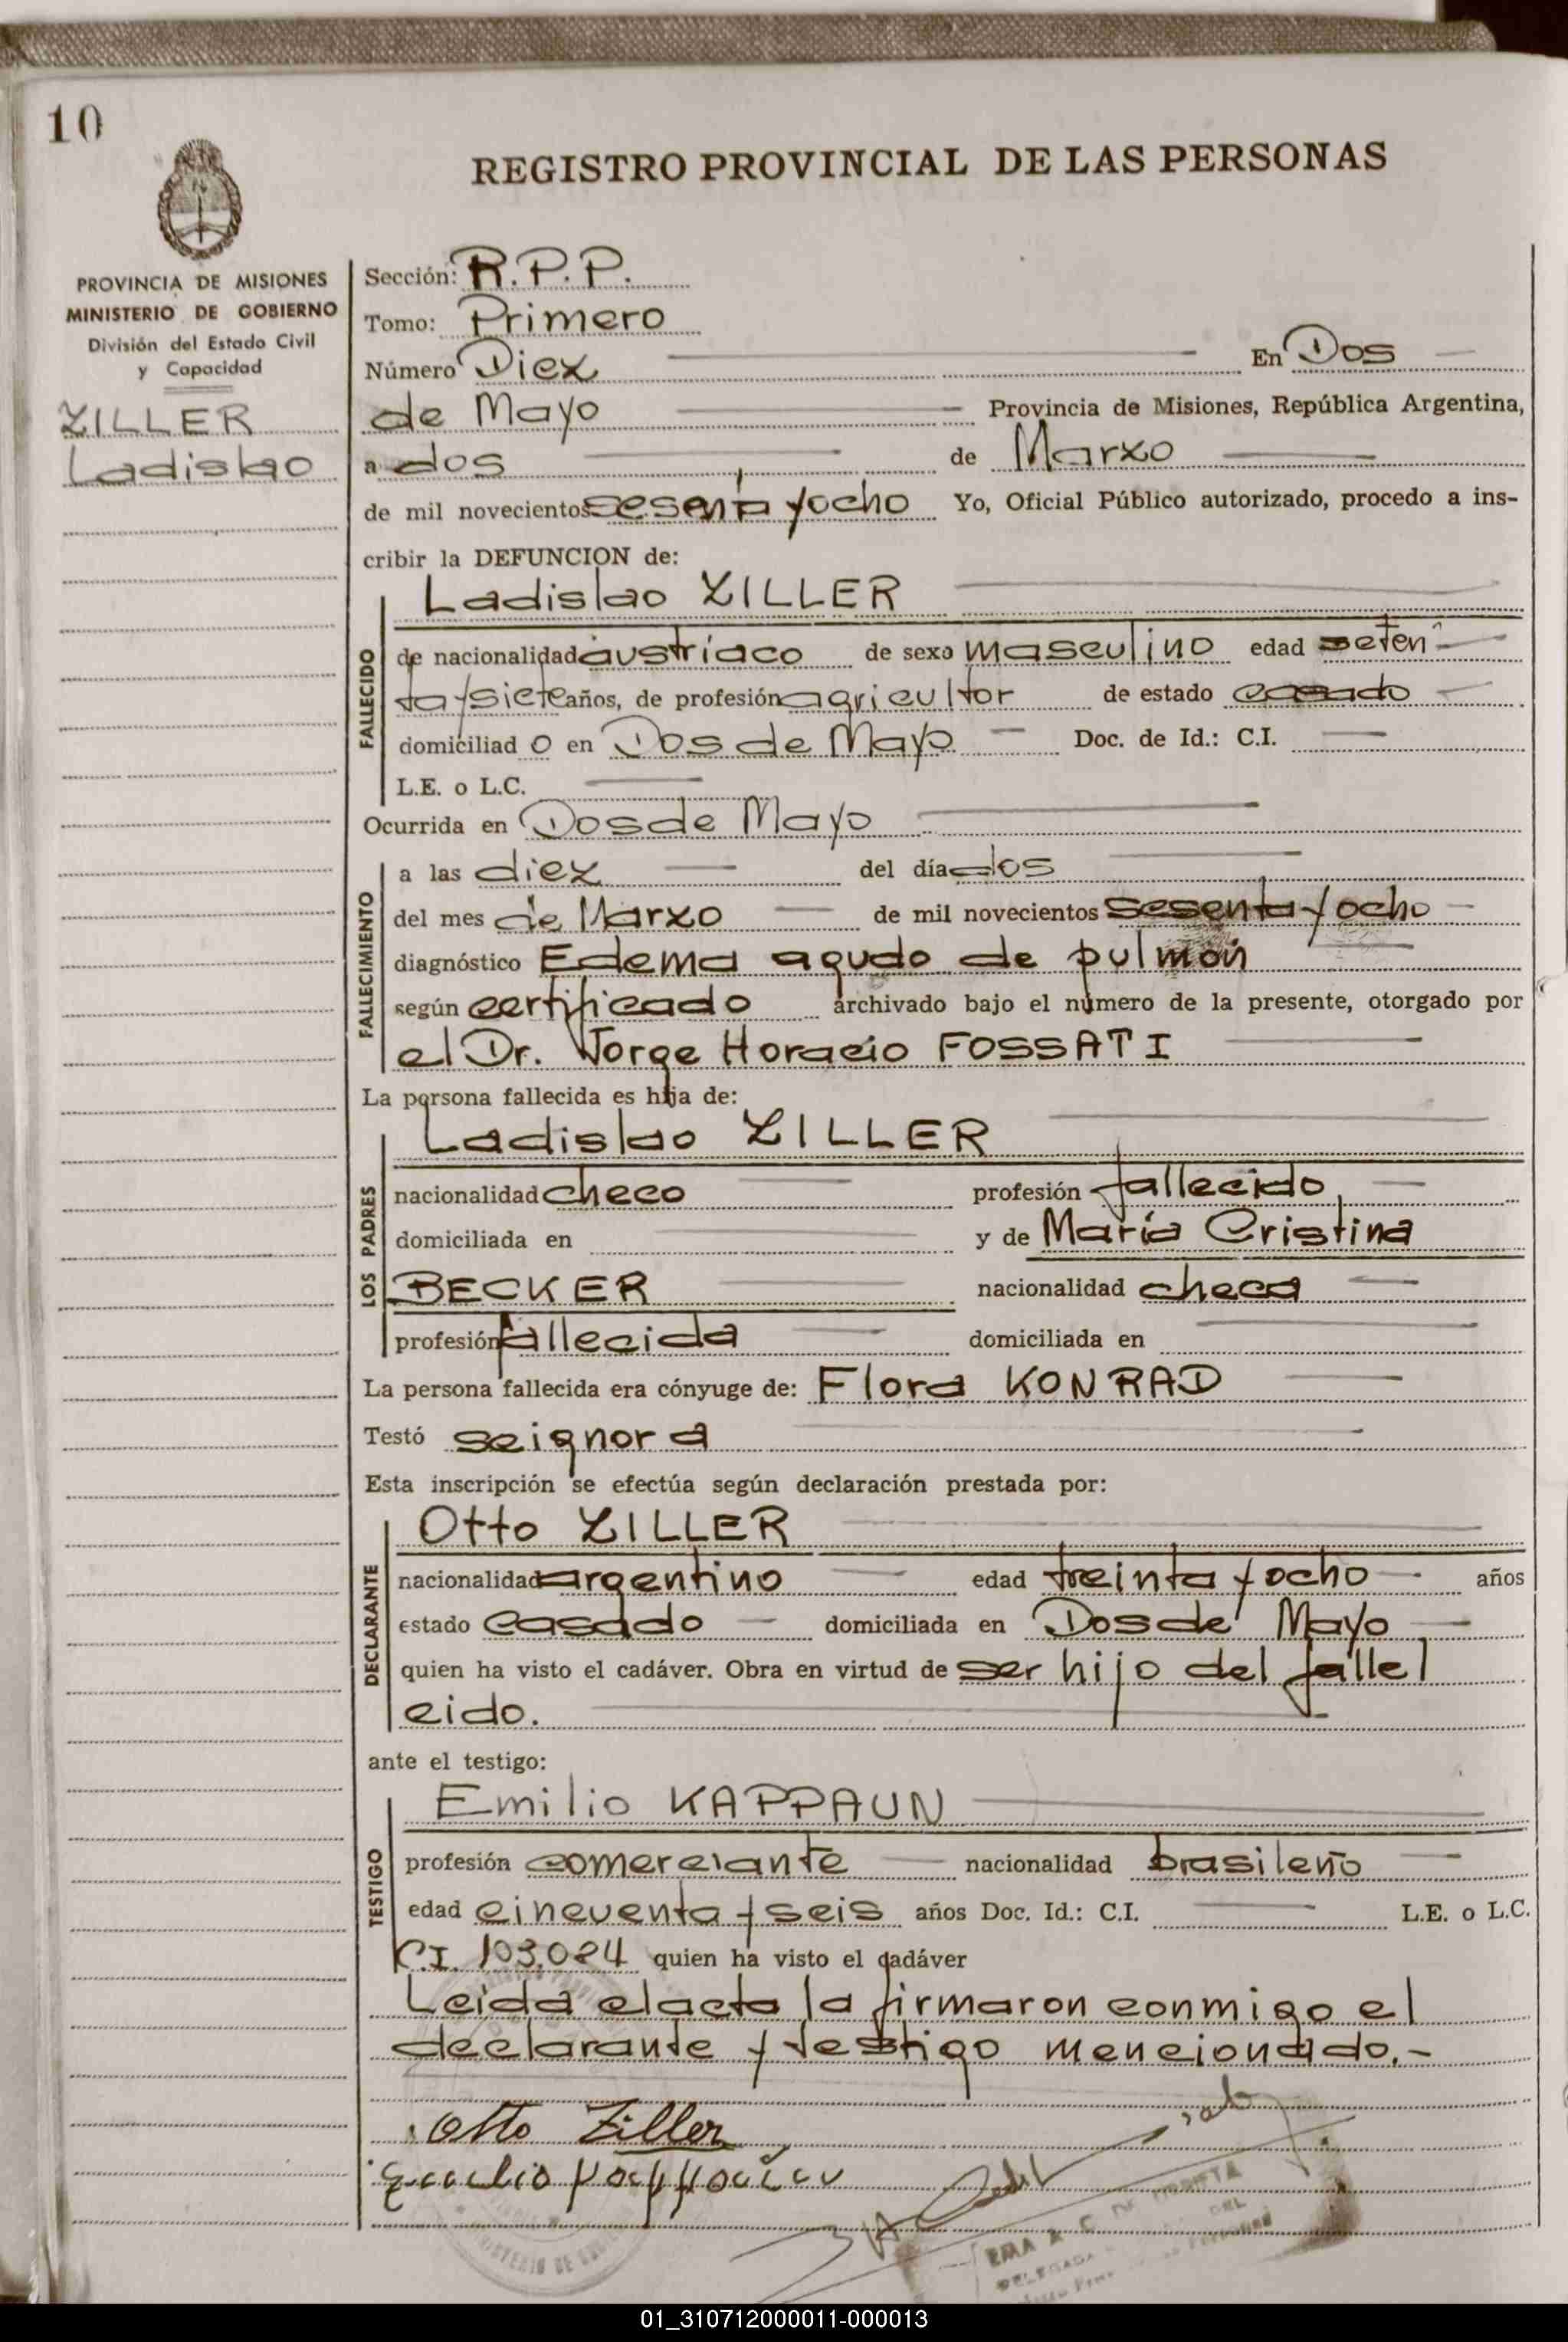 10
REGISTRO PROVINCIAL DE LAS PERSONAS
PROVINCIA DE MISIONES
MINISTERIO DE GOBIERNO
División del Estado Civil
y Capacidad
ZILLER
Ladislao
Sección: R.P.P.
Tomo: Primero
Número Diez En Dos
de Mayo Provincia de Misiones, República Argentina,
a dos de Marzo
de mil novecientos sesenta y ocho Yo, Oficial Público autorizado, procedo a ins-
cribir la DEFUNCION de:
Ladislao ZILLER
FALLECIDO
de nacionalidad austríaco de sexo masculino edad seten
ta y siete años, de profesión agricultor de estado casado
domiciliad o en Dos de Mayo Doc. de Id.: C.I.
L.E. o L.C.
Ocurrida en Dos de Mayo
FALLECIMIENTO
a las diez del día dos
del mes de Marzo de mil novecientos sesenta y ocho
diagnóstico Edema agudo de pulmón
según certificado archivado bajo el número de la presente, otorgado por
el Dr. Jorge Horacio FOSSATI
La persona fallecida es hija de:
Ladislao ZILLER
LOS PADRES
nacionalidad checo profesión fallecido
domiciliada en y de María Cristina
BECKER nacionalidad checa
profesión fallecida domiciliada en
La persona fallecida era cónyuge de: Flora KONRAD
Testó se ignora
Esta inscripción se efectúa según declaración prestada por:
Otto ZILLER
DECLARANTE
nacionalidad argentino edad treinta y ocho años
estado casado domiciliada en Dos de Mayo
quien ha visto el cadáver. Obra en virtud de ser hijo del falle
cido.
ante el testigo:
Emilio KAPPAUN
TESTIGO
profesión comerciante nacionalidad brasileño
edad cincuenta y seis años Doc. Id.: C.I. L.E. o L.C.
C.I. 103.024 quien ha visto el cadáver
Leida el acta la firmaron conmigo el
declarante y testigo mencionado.-
Otto Ziller
Emilio Kappaun
01_310712000011-000013